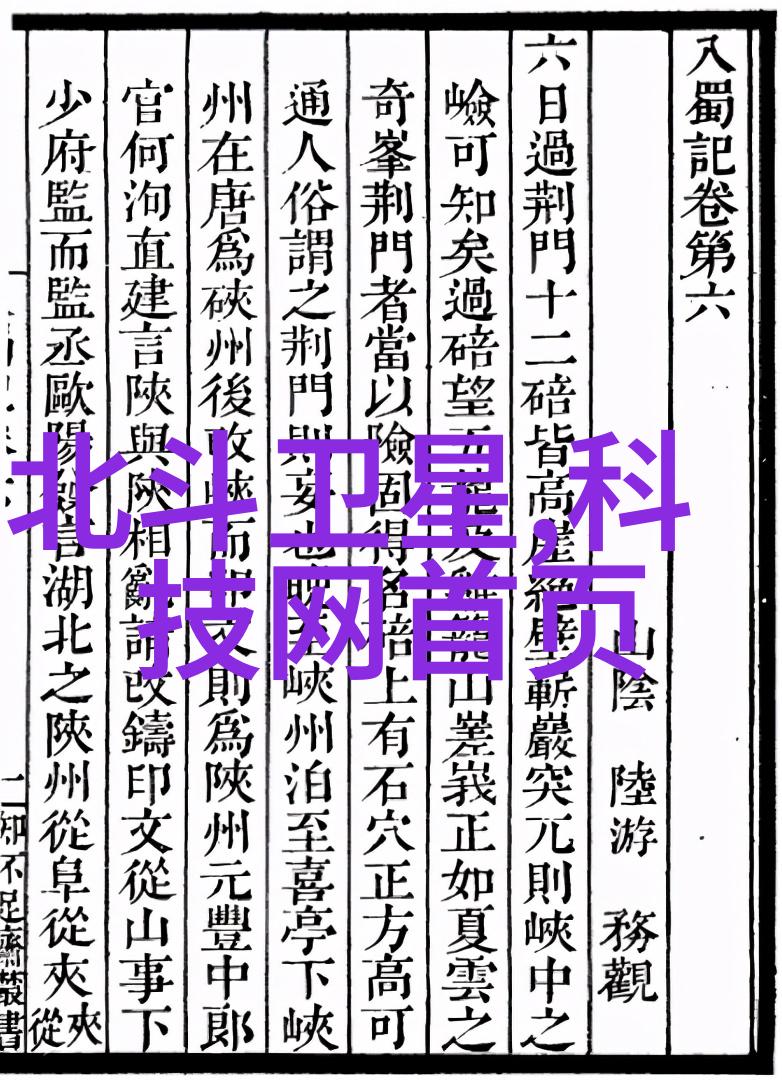 入蜀記卷第六
山陰 陸游 務觀
六日過荆門十二碚皆高崖絶壁嶄巖突兀則峽中之
嶮可知矣過碚望五及雞籠山嵳峩正如夏雲之
奇峯荆門者當以險固得名碚上有石穴正方高可
通人俗謂之荆門則妄也晚至峽州泊至喜亭下峽
州在唐爲硤州後改峽而印文則爲陝州元豐中郎
官何洵直建言陝與陝相亂請改鑄印文從山事下
少府監而監丞歐陽發言湖北之陝州從阜從夾夾從
二知不足齋叢書
北斗卫星,科
技网首页